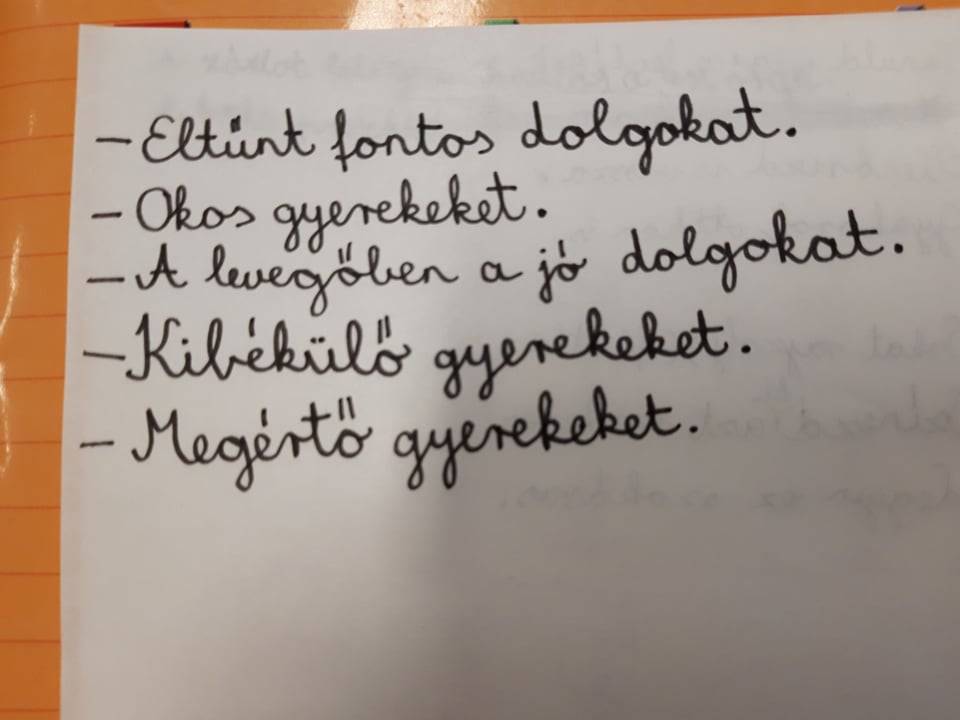 - Eltűnt fontos dolgokat.
- Okos gyerekeket.
- A levegőben a jó dolgokat.
- Kibékülő gyerekeket.
- Megértő gyerekeket.